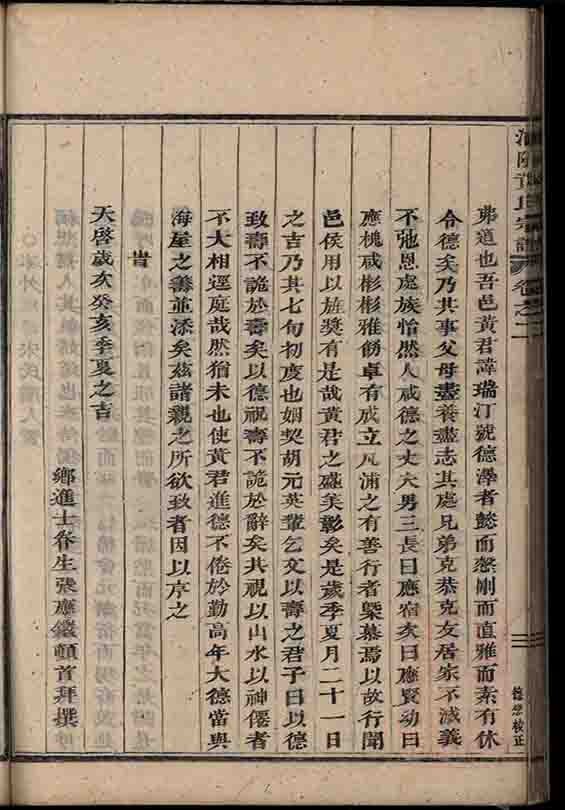 黃氏宗譜
卷之二
弟道也吾邑黃君諱瑞汀號德澤者懿而慤剛而直雅而素有休
令德矣乃其事父母盡養盡志其處兄弟克恭克友居家不減義
不弛恩處族怡然人咸德之丈夫男三長曰應宿次曰應賢幼曰
應槐咸彬彬雅飭卓有成立凡浦之有善行者槩慕焉以故行聞
邑侯用以旌獎有是哉黃君之彰矣是歲季夏月二十一日
之吉乃其七旬初度也姻契胡元英輩乞文以壽之君子曰以德
致壽不詭於壽矣以德祝壽不詭於辭矣共視以山水以神僊者
不大相逕庭哉然猶未也使黃君進德不倦於勤高年大德當與
海屋之籌並添矣茲諸親之所欲致者因以序之
旹
天啓歲次癸亥季夏之吉
鄉進士眷生張應頓首拜撰
校正